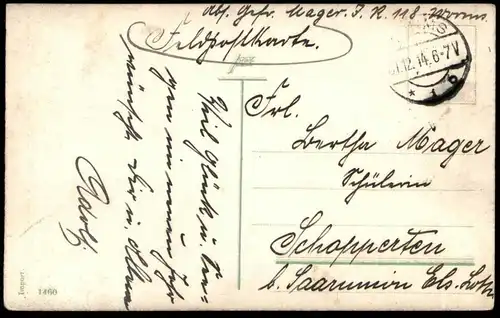 Abs. Gefr. Mager. I. R. 118. Worms.
Feldpostkarte.
31.12.14.6-7V
* 1 b
Frl.
Bertha Mager
Schülerin
Schopperten
b. Saarunion Els. Loth.
Viel Glück u. Se-
gen im neuen Jahr
wünscht Dir u. Allen
Adolf.
Import
1460